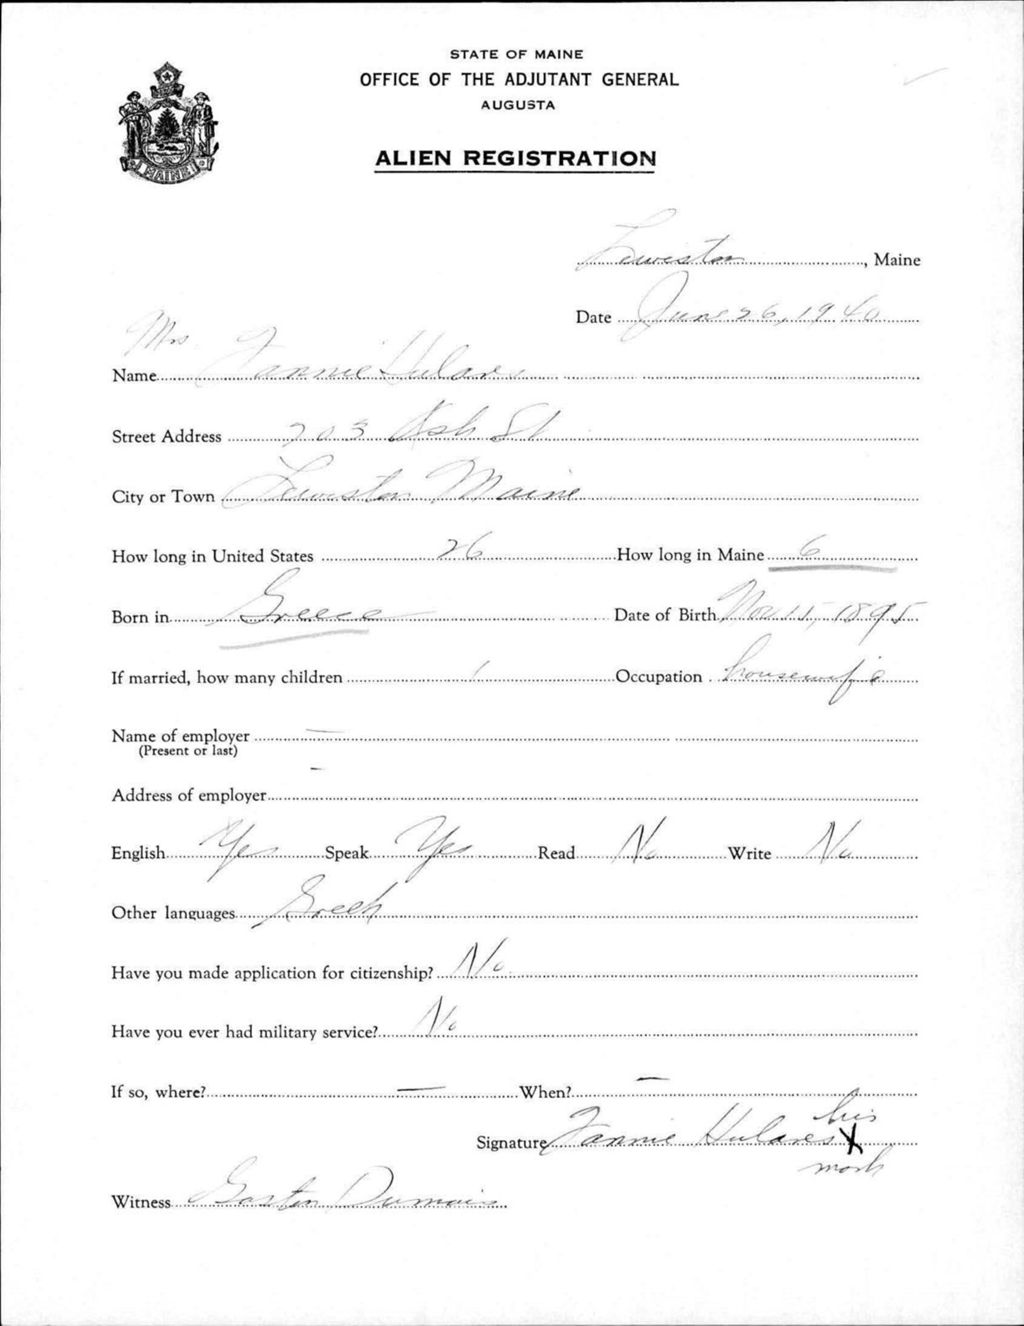 STATE OF MAINE
OFFICE OF THE ADJUTANT GENERAL
AUGUSTA
MAINE
ALIEN REGISTRATION
Lewiston, Maine
Date June 26, 1940
Mrs.
Name Fannie Hulares
Street Address 203 Ash St
City or Town Lewiston Maine
How long in United States 26 How long in Maine 6
Born in Greece Date of Birth Nov 15, 1895
If married, how many children 1 Occupation housewife
Name of employer —
(Present or last)
—
Address of employer
English Yes Speak Yes Read No Write No
Other languages Greek
Have you made application for citizenship? No
Have you ever had military service? No
If so, where? — When? —
his
Signature Fannie Hulares X
mark
Witness Gaston Dumais